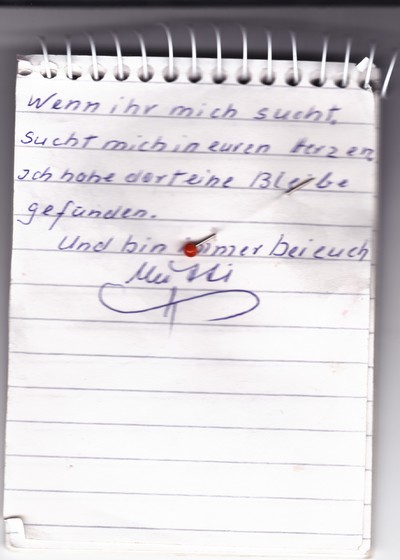 Wenn ihr mich sucht,
sucht mich in euren Herzen,
Ich habe dort eine Bleibe
gefunden.
Und bin immer bei euch
Mutti